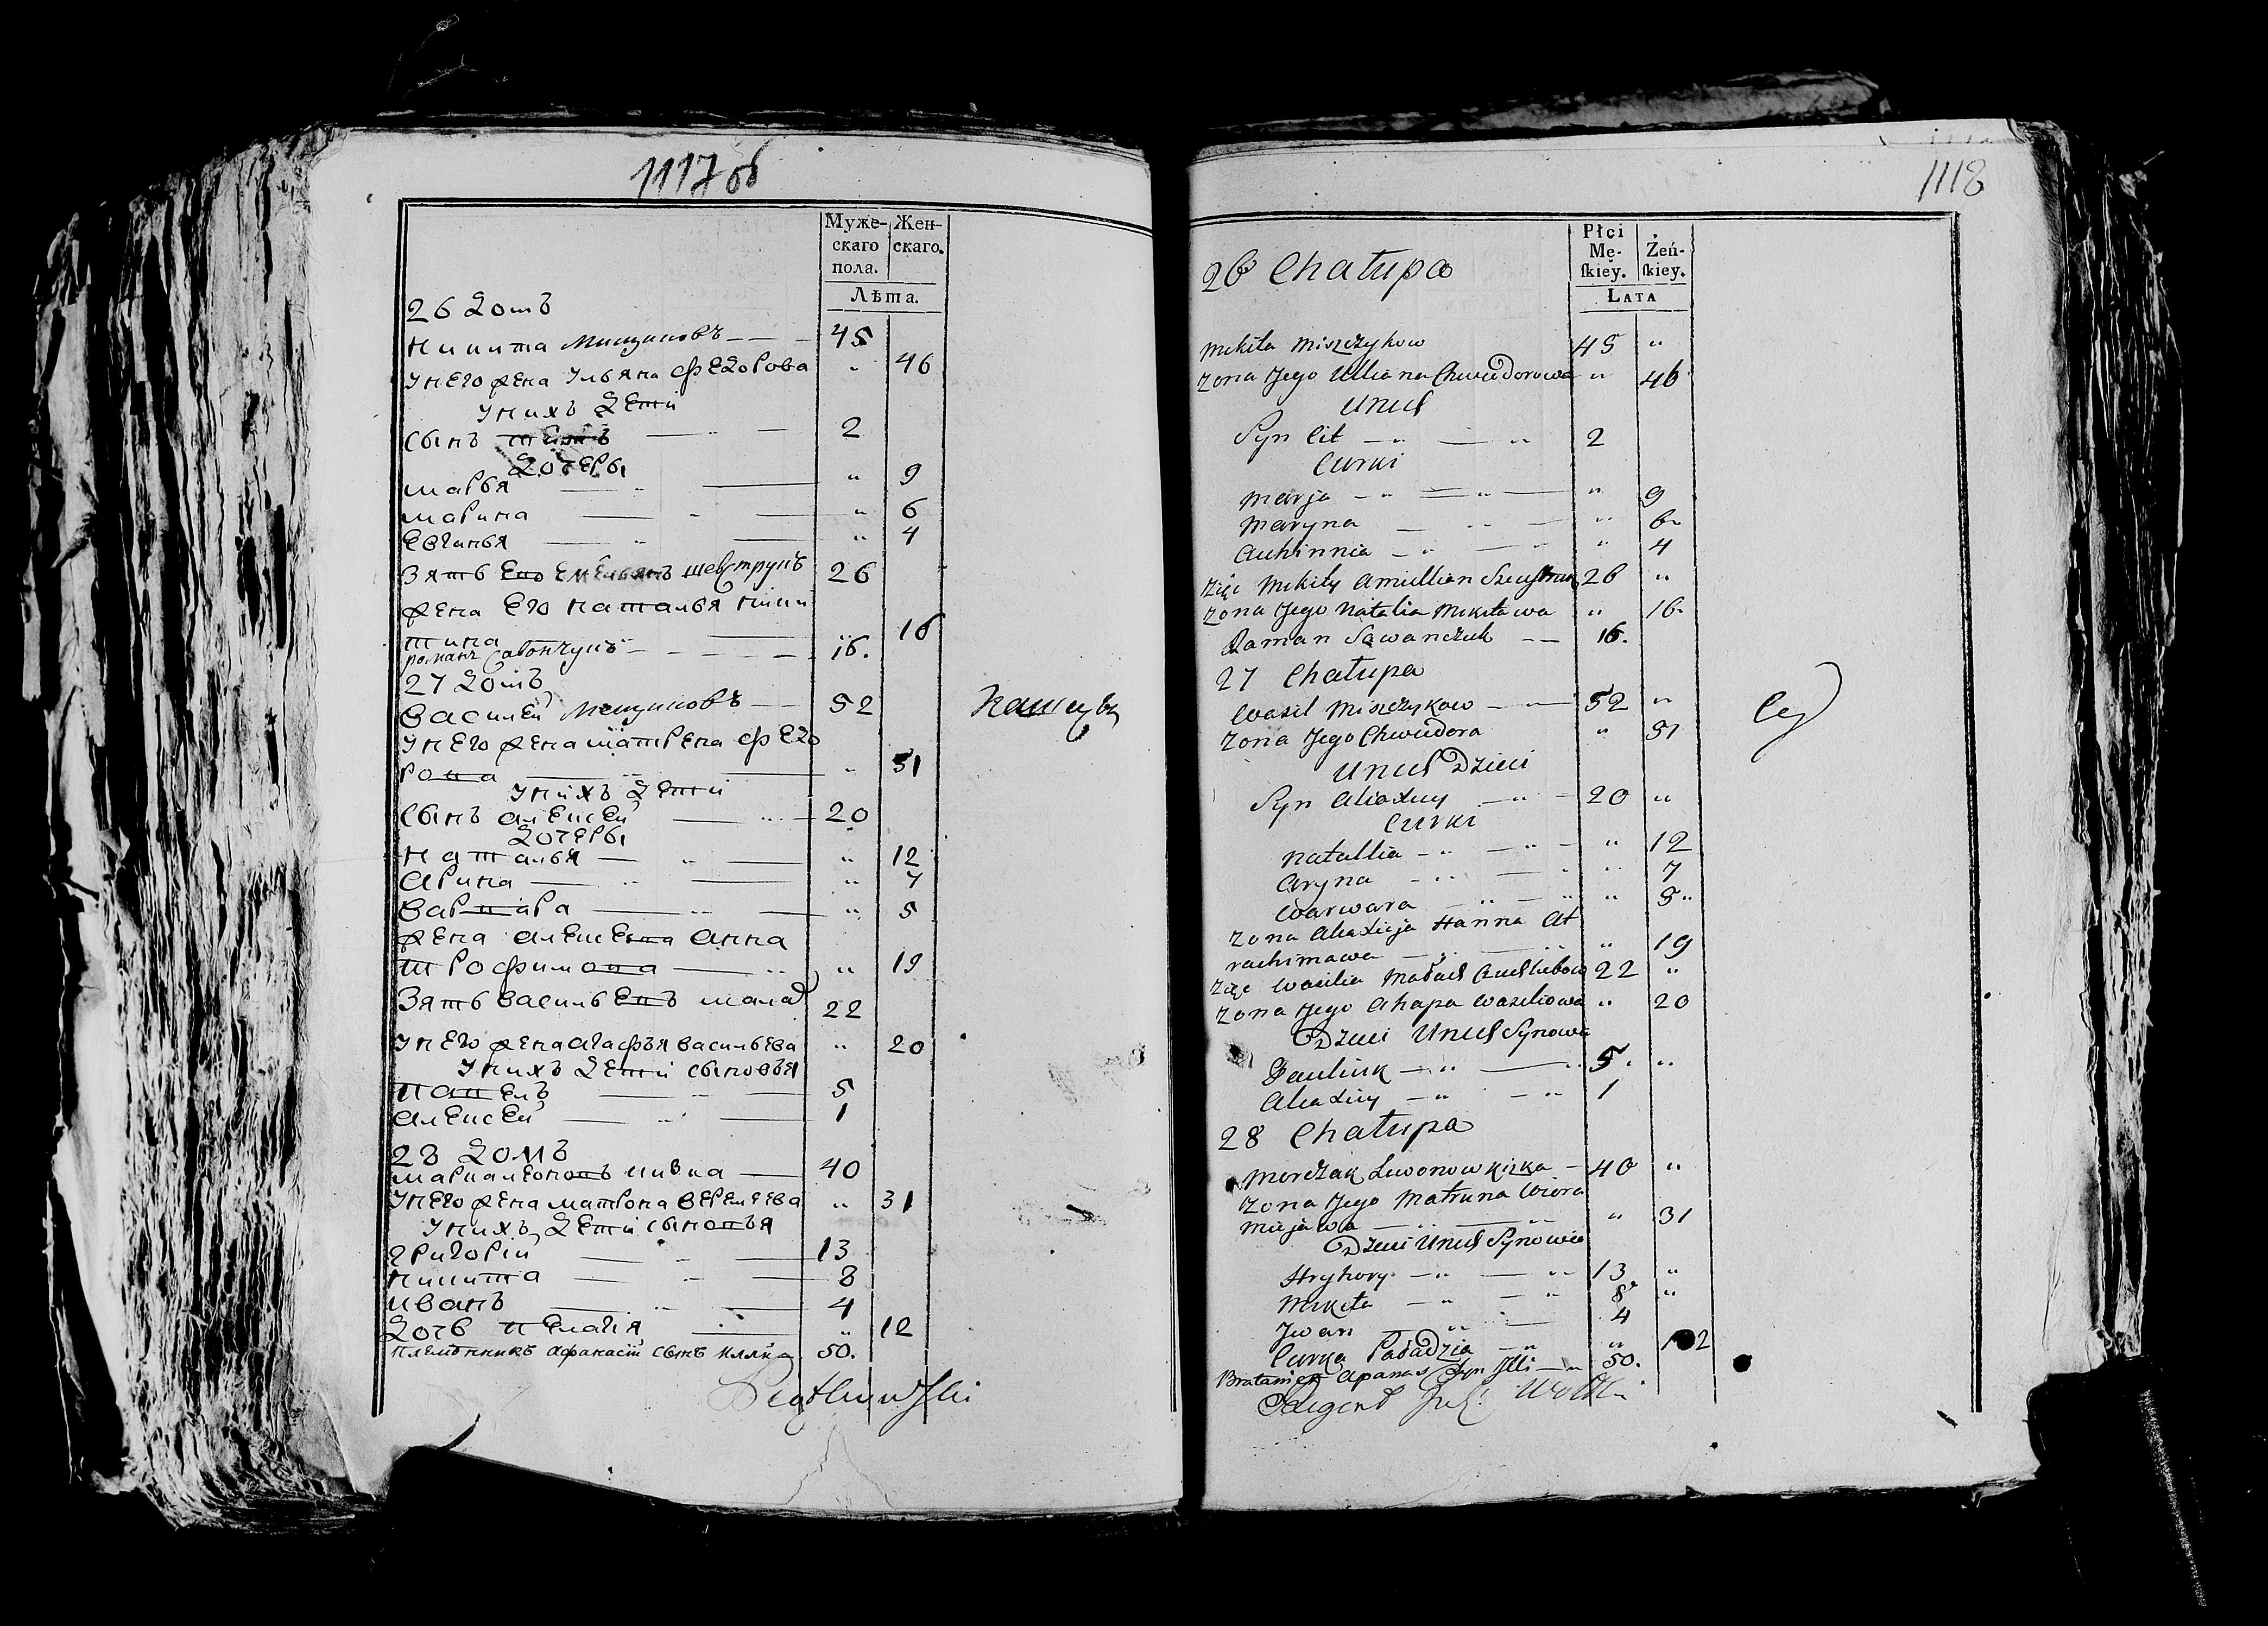 1117 об
Муже-
скаго
пола.
Жен-
скаго.
Лѣта.
26 Домъ
Никита Мищиковъ 45
У него жена Ульяна Федорова " 46
У нихъ Дети
Сынъ титъ 2
Дочеры
Марья " 9
Марина " 6
Евгинья " 4
Зять Его Емельянъ шевструкъ 26
жена Его наталья Ники
тина 16
романъ Савончукъ 16.
27 Домъ
Василей Мищиковъ 52
У него жена матрена Федо
рова " 51
У нихъ Дети
Сынъ алексей 20
Дочеры
Наталья " 12
Арина " 7
Варвара " 5
жена алексева анна
трофимова " 19
Зять василь Евъ 22
У него жена агафья васильева " 20
У нихъ Дети сыновья
павелъ 5
алексей 1
28 Домъ
40
У него жена матрона Веремеева " 31
У нихъ Дети сыновья
Григорій 13
Никита 8
Иванъ 4
Дочь пелагія " 12
племянникъ афанасій сынъ 50.
1118
Płci
Mę-
skiéy.
Żeń-
skiéy.
Lata
26 Chałupa
Mikita Miszczykow 45 "
Zona Jego Ulliana Chwiedorowa " 46
U nich
Syn Cit 2
Curki
Marja " 9
Maryna " 6
Auhinnia " 4
Zięć Mikity Amiellian 26 "
Zona Jego Natalia Mikitawa " 16
Raman Sawanczuk 16.
27 Chałupa
Wasil Miszczykow 52 "
Zona Jego Chwiedora " 51
U nich Dzieci
Syn Aliaxiey 20 "
Curki
Natallia " 12
Aryna " 7
Warwara " 5
Zona Aliaxieja Hanna At
rachimawa " 19
Zięć Wasilia 22 "
Zona Jego Ahapa Wasiliowa " 20
Dzieci U nich Synowie
Pauliuk 5. "
Aliaxiey 1
28 Chałupa
Lewonow 40 "
Zona Jego Matruna Wiera
miejawa " 31
Dzieci U nich Synowie
Hryhory 13 "
Mikita 8 "
Jwan 4
Curka Paładzia " 12
Bratanick Apanas Syn Jlli 50.